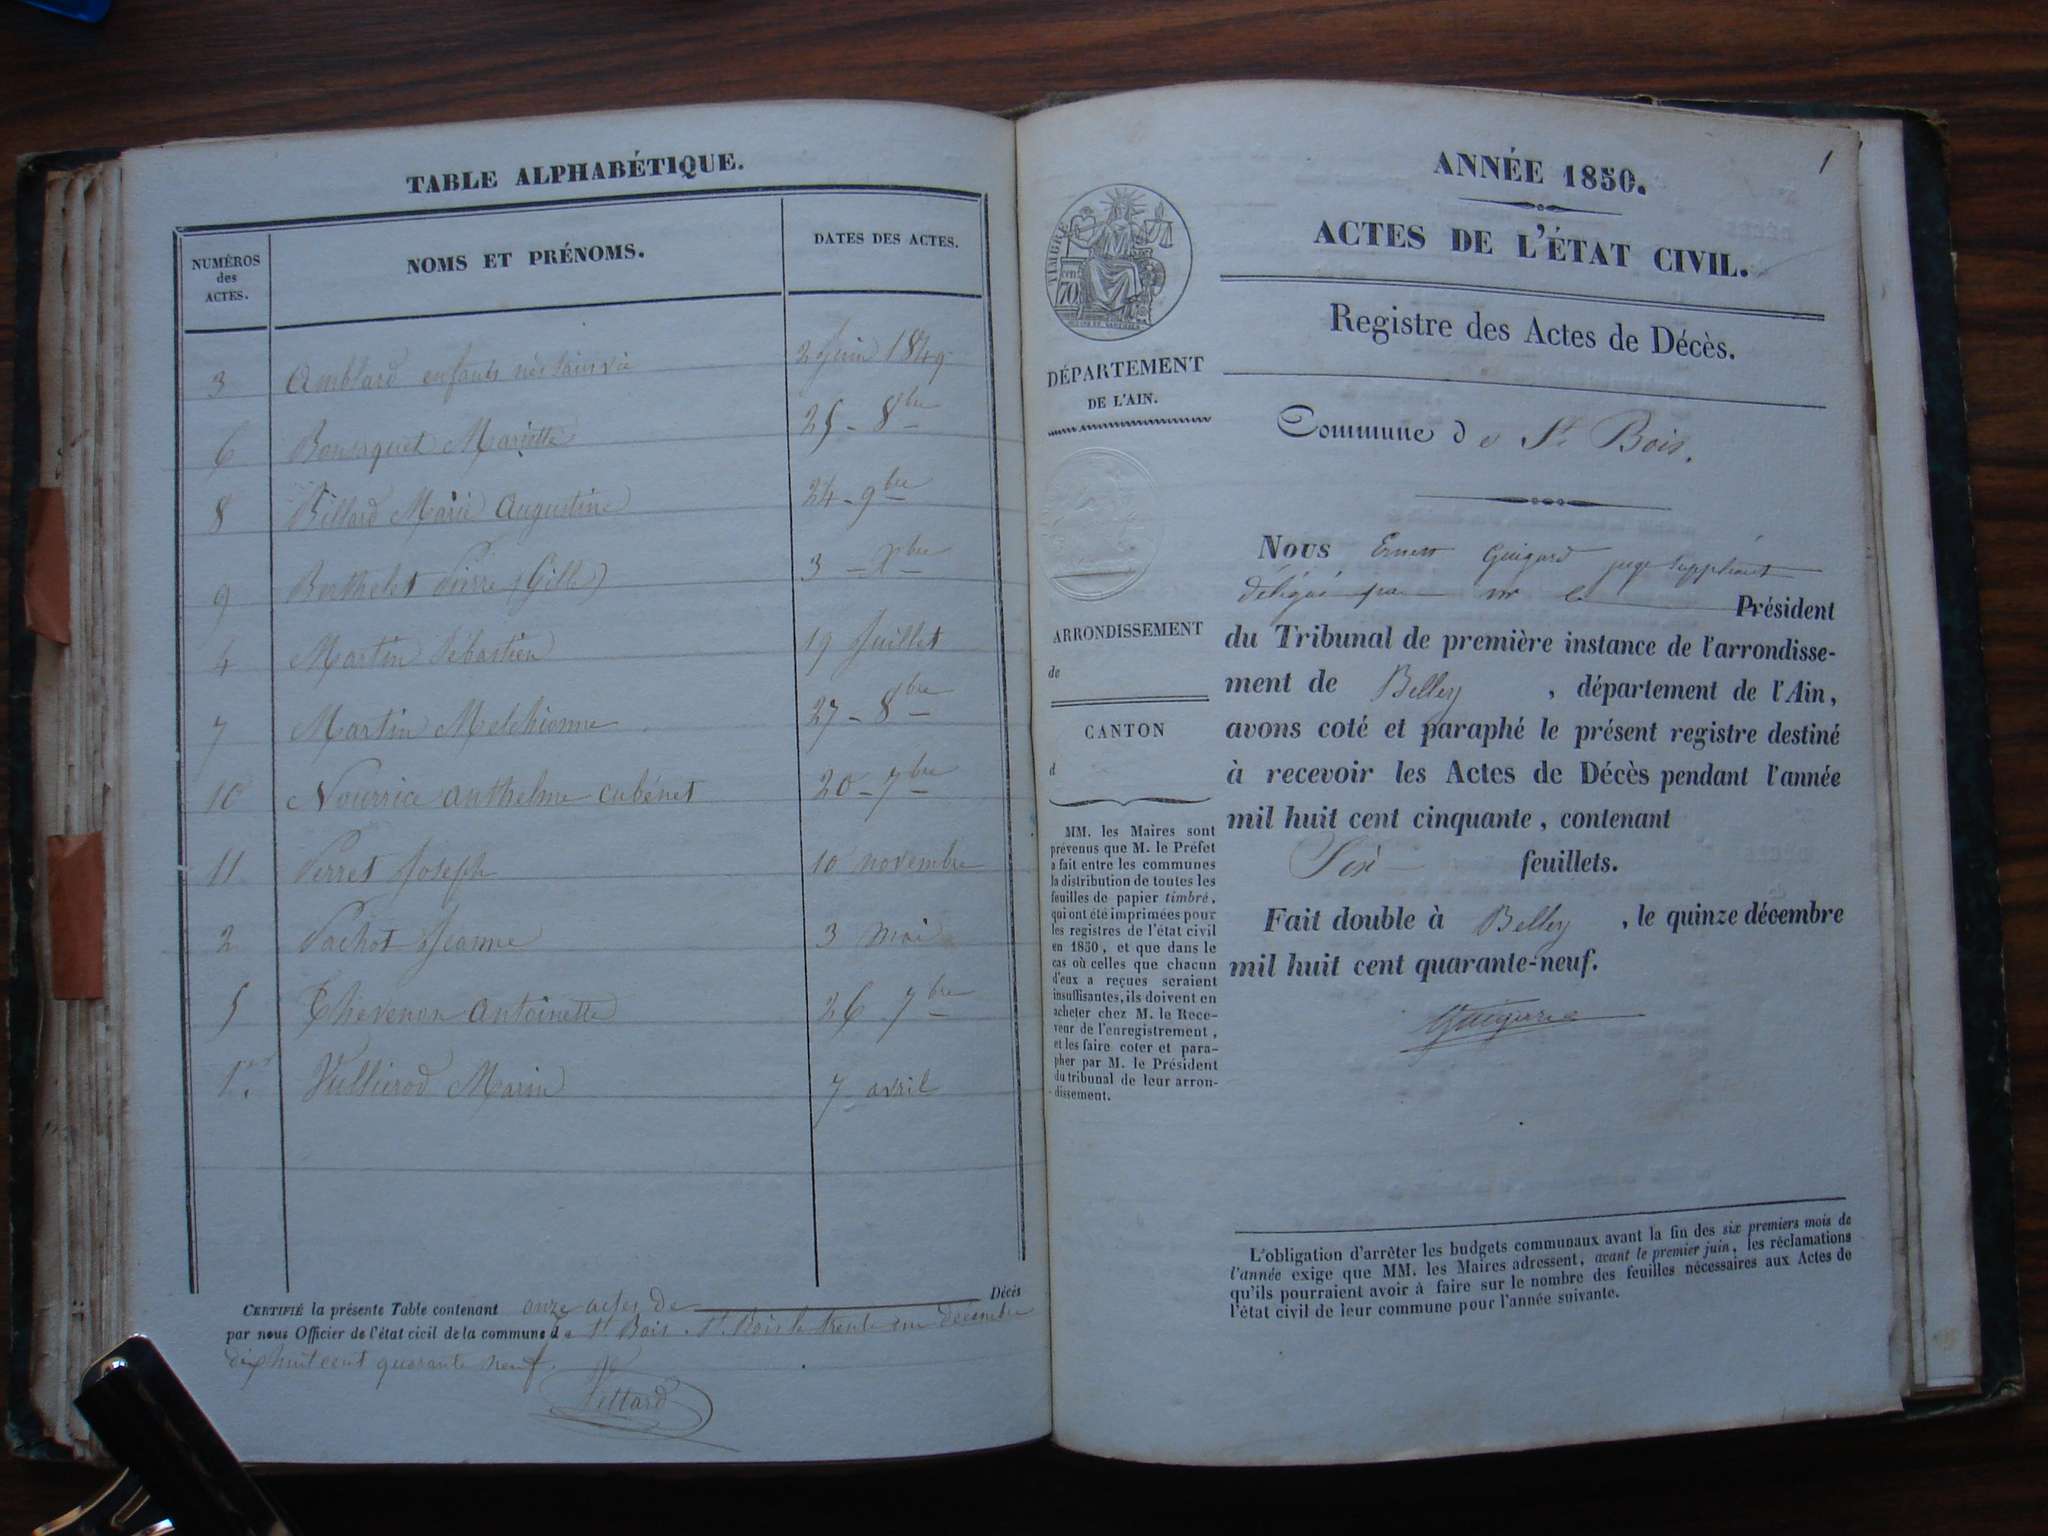 TABLE ALPHABÉTIQUE.
NUMÉROS
des
ACTES.
NOMS ET PRÉNOMS.
DATES DES ACTES.
3 Amblard enfants nés sans vie 2 Juin 1849
6 Bousquet Mariette 25 - 8bre
8 Billard Marie Augustine 24 - 9bre
9 Berthelet Pierre (Gille) 3 - Xbre
4 Martin Sébastien 19 Juillet
7 Martin Melchionne 27 - 8bre
10 Nourrice anthelme cubénet 20 - 7bre
11 Perret Joseph 10 novembre
2 Pachot Jeanne 3 mai
5 Thevenon Antoinette 26 7bre
1er. Vullierod Marin 7 avril
CERTIFIÉ la présente Table contenant onze actes de Décès
par nous Officier de l'état cicil de la commune de St Bois. St. Bois le trente un décembre
dix huit cent quarante neuf.
1
ANNÉE 1850.
ACTES DE L'ÉTAT CIVIL.
Registre des Actes de Décès.
TIMBRE
70
DÉPARTEMENT
DE L'AIN.
Commune de St. Bois.
ARRONDISSEMENT
de
CANTON
d
MM. les Maires sont
prévenus que M. le Préfet
a fait entre les communes
la distribution de toutes les
feuilles de papier timbré,
qui ont été imprimées pour
les registres de l'état civil
en 1850, et que dans le
cas où celles que chacun
d'eux a reçues seraient
insuffisantes, ils doivent en
acheter chez M. le Rece-
veur de l'enregistrement,
et les faire coter et para-
pher par M. le Président
du tribunal de leur arron-
dissement.
Nous Ernest Guigard juge Suppléant
délégué par mr le Président
du Tribunal de première instance de l'arrondisse-
ment de Belley, département de l'Ain,
avons coté et paraphé le présent registre destiné
à recevoir les Actes de Décès pendant l'année
mil huit cent cinquante, contenant
Six feuillets.
Fait double à Belley, le quinze décembre
mil huit cent quarante-neuf.
Guigard
L'obligation d'arrêter les budgets communaux avant la fin des six premiers mois de
l'année exige que MM. les Maires adressent, avant le premier juin, les réclamations
qu'ils pourraient avoir à faire sur le nombre des feuilles nécessaires aux Actes de
l'état civil de leur commune pour l'année suivante.